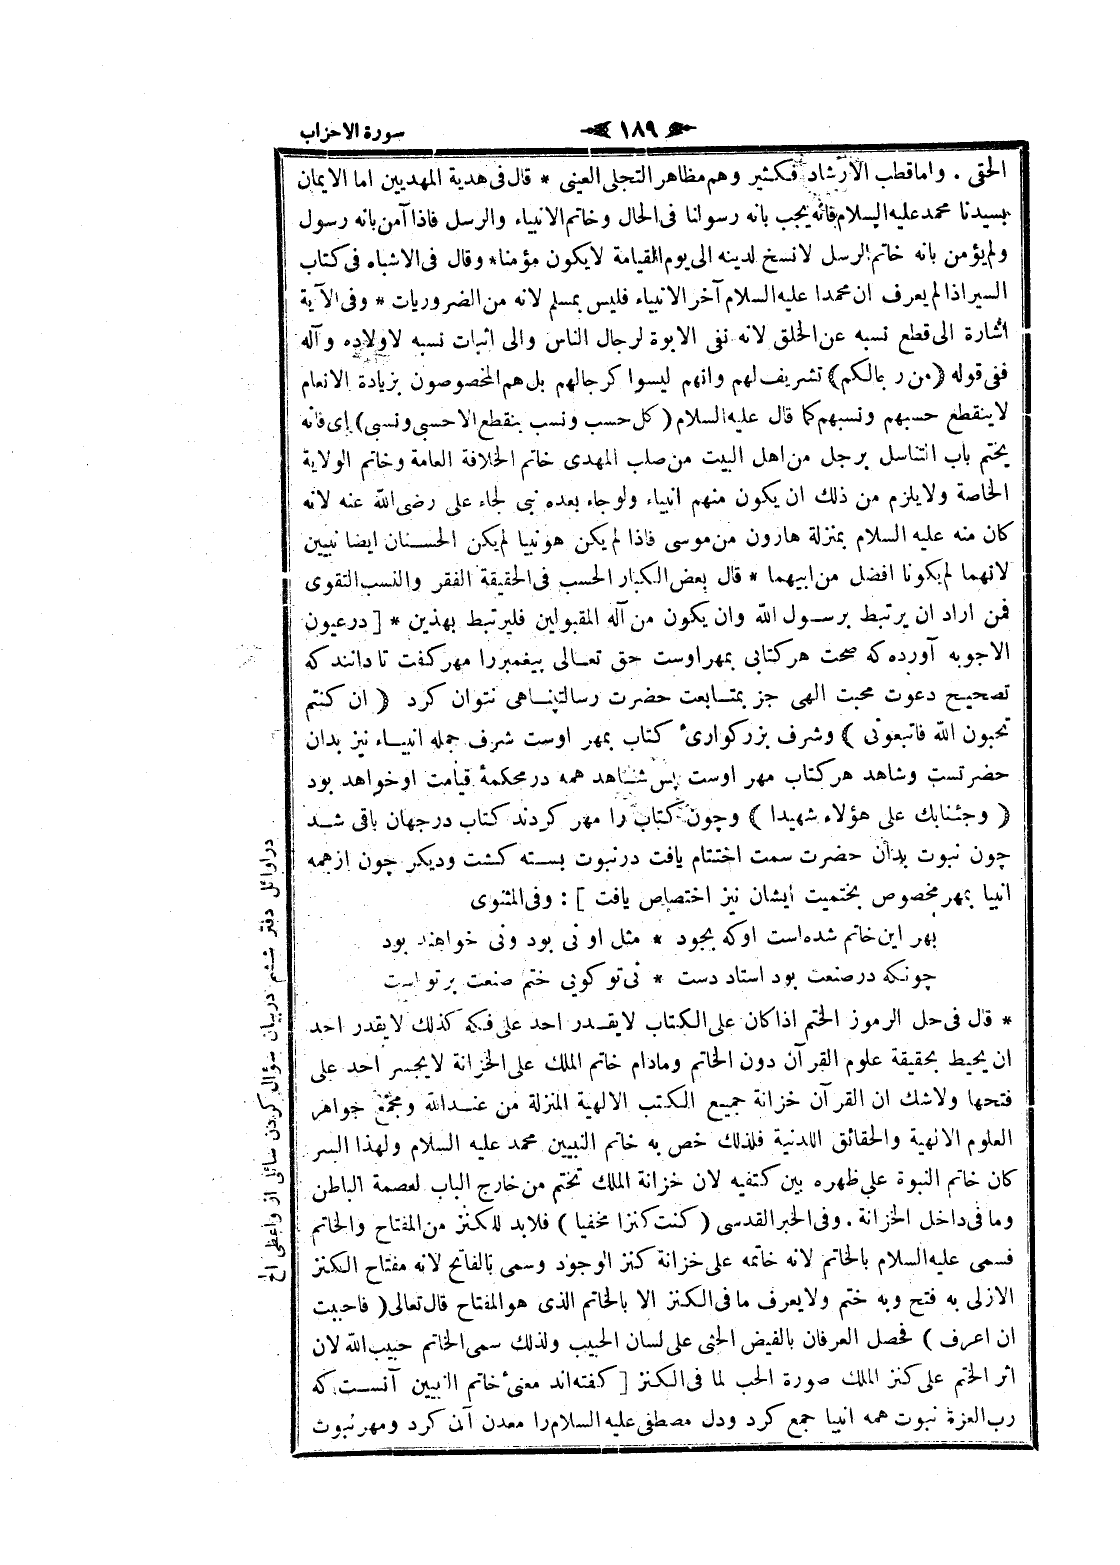 سورة الاحزاب
١٨٩
الحقى . واما قطب الارشاد فكثير وهم مظاهر التجلى العينى * قال فى هدية المهديين اما الايمان
بسيدنا محمد عليه السلام فانه يجب بانه رسولنا فى الحال وخاتم الانبياء والرسل فاذا آمن بانه رسول
ولم يؤمن بانه خاتم الرسل لا نسخ لدينه الى يوم القيامة لا يكون مؤمنا * وقال فى الاشباه فى كتاب
السير اذا لم يعرف ان محمدا عليه السلام آخر الانبياء فليس بمسلم لانه من الضروريات * وفى الآية
اشارة الى قطع نسبه عن الخلق لانه نفى الابوة لرجال الناس والى اثبات نسبه لاولاده وآله
ففى قوله ( من رجالكم ) تشريف لهم وانهم ليسوا كرجالهم بل هم المخصوصون بزيادة الانعام
لا ينقطع حسبهم ونسبهم كما قال عليه السلام ( كل حسب ونسب ينقطع الا حسبى ونسبى ) اى فانه
يختم باب التناسل برجل من اهل البيت من صلب المهدى خاتم الخلافة العامة وخاتم الولاية
الخاصة ولا يلزم من ذلك ان يكون منهم انبياء ولو جاء بعده نبى لجاء على رضى الله عنه لانه
كان منه عليه السلام بمنزلة هارون من موسى فاذا لم يكن هو نبيا لم يكن الحسنان ايضا نبيين
لانهما لم يكونا افضل من ابيهما * قال بعض الكبار الحسب فى الحقيقة الفقر والنسب التقوى
فمن اراد ان يرتبط برسول الله وان يكون من آله المقبولين فليرتبط بهذين * [ در عيون
الاجوبه آورده كه صحت هر كتابى بمهر اوست حق تعالى پيغمبر را مهر كفت تا دانند كه
تصحيح دعوت محبت الهى جز بمتابعت حضرت رسالتپناهى نتوان كرد ( ان كنتم
تحبون الله فاتبعونى ) وشرف بزركوارئ كتاب بمهر اوست شرف جمله انبياء نيز بدان
حضرتست وشاهد هر كتاب مهر اوست پس شاهد همه در محكمۀ قيامت او خواهد بود
( وجئنا بك على هؤلاء شهيدا ) وچون كتاب را مهر كردند كتاب در جهان باقى شد
چون نبوت بدان حضرت سمت اختتام يافت در نبوت بسته كشت وديكر چون از همه
انبيا بمهر مخصوص بختميت ايشان نيز اختصاص يافت ] : وفى المثنوى
بهر اين خاتم شده است او كه بجود * مثل او نى بود ونى خواهند بود
چونكه در صنعت بود استاد دست * نى تو كويى ختم صنعت بر تو است
* قال فى حل الرموز الختم اذا كان على الكتاب لا يقدر احد على فكه كذلك لا يقدر احد
ان يحيط بحقيقة علوم القرآن دون الخاتم ومادام خاتم الملك على الخزانة لا يجسر احد على
فتحها ولا شك ان القرآن خزانة جميع الكتب الالهية المنزلة من عند الله ومجمع جواهر
العلوم الالهية والحقائق اللدنية فلذلك خص به خاتم النبيين محمد عليه السلام ولهذا السر
كان خاتم النبوة على ظهره بين كتفيه لان خزانة الملك تختم من خارج الباب لعصمة الباطن
وما فى داخل الخزانة . وفى الخبر القدسى ( كنت كنزا مخفيا ) فلا بد للكنز من المفتاح والخاتم
فسمى عليه السلام بالخاتم لانه خاتمه على خزانة كنز الوجود وسمى بالفاتح لانه مفتاح الكنز
الازلى به فتح وبه ختم ولا يعرف ما فى الكنز الا بالخاتم الذى هو المفتاح قال تعالى ( فاحببت
ان اعرف ) فحصل العرفان بالفيض الحبى على لسان الحبيب ولذلك سمى الخاتم حبيب الله لان
اثر الختم على كنز الملك صورة الحب لما فى الكنز [ كفته اند معنئ خاتم النبيين آنست كه
رب العزة نبوت همه انبيا جمع كرد ودل مصطفى عليه السلام را معدن آن كرد ومهر نبوت
در اوائل دفتر ششم در بيان سؤال كردن سائلى از واعظى الخ